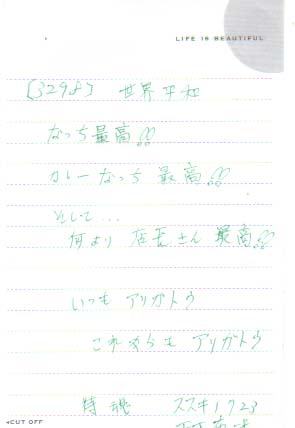 LIFE IS BEAUTIFUL
世界平和
なっち最高!!
カレーなっち 最高!!
そして...
何より 店長さん 最高!!
いつも アリガトウ
これからも アリガトウ
ススキ1723
CUT OFF